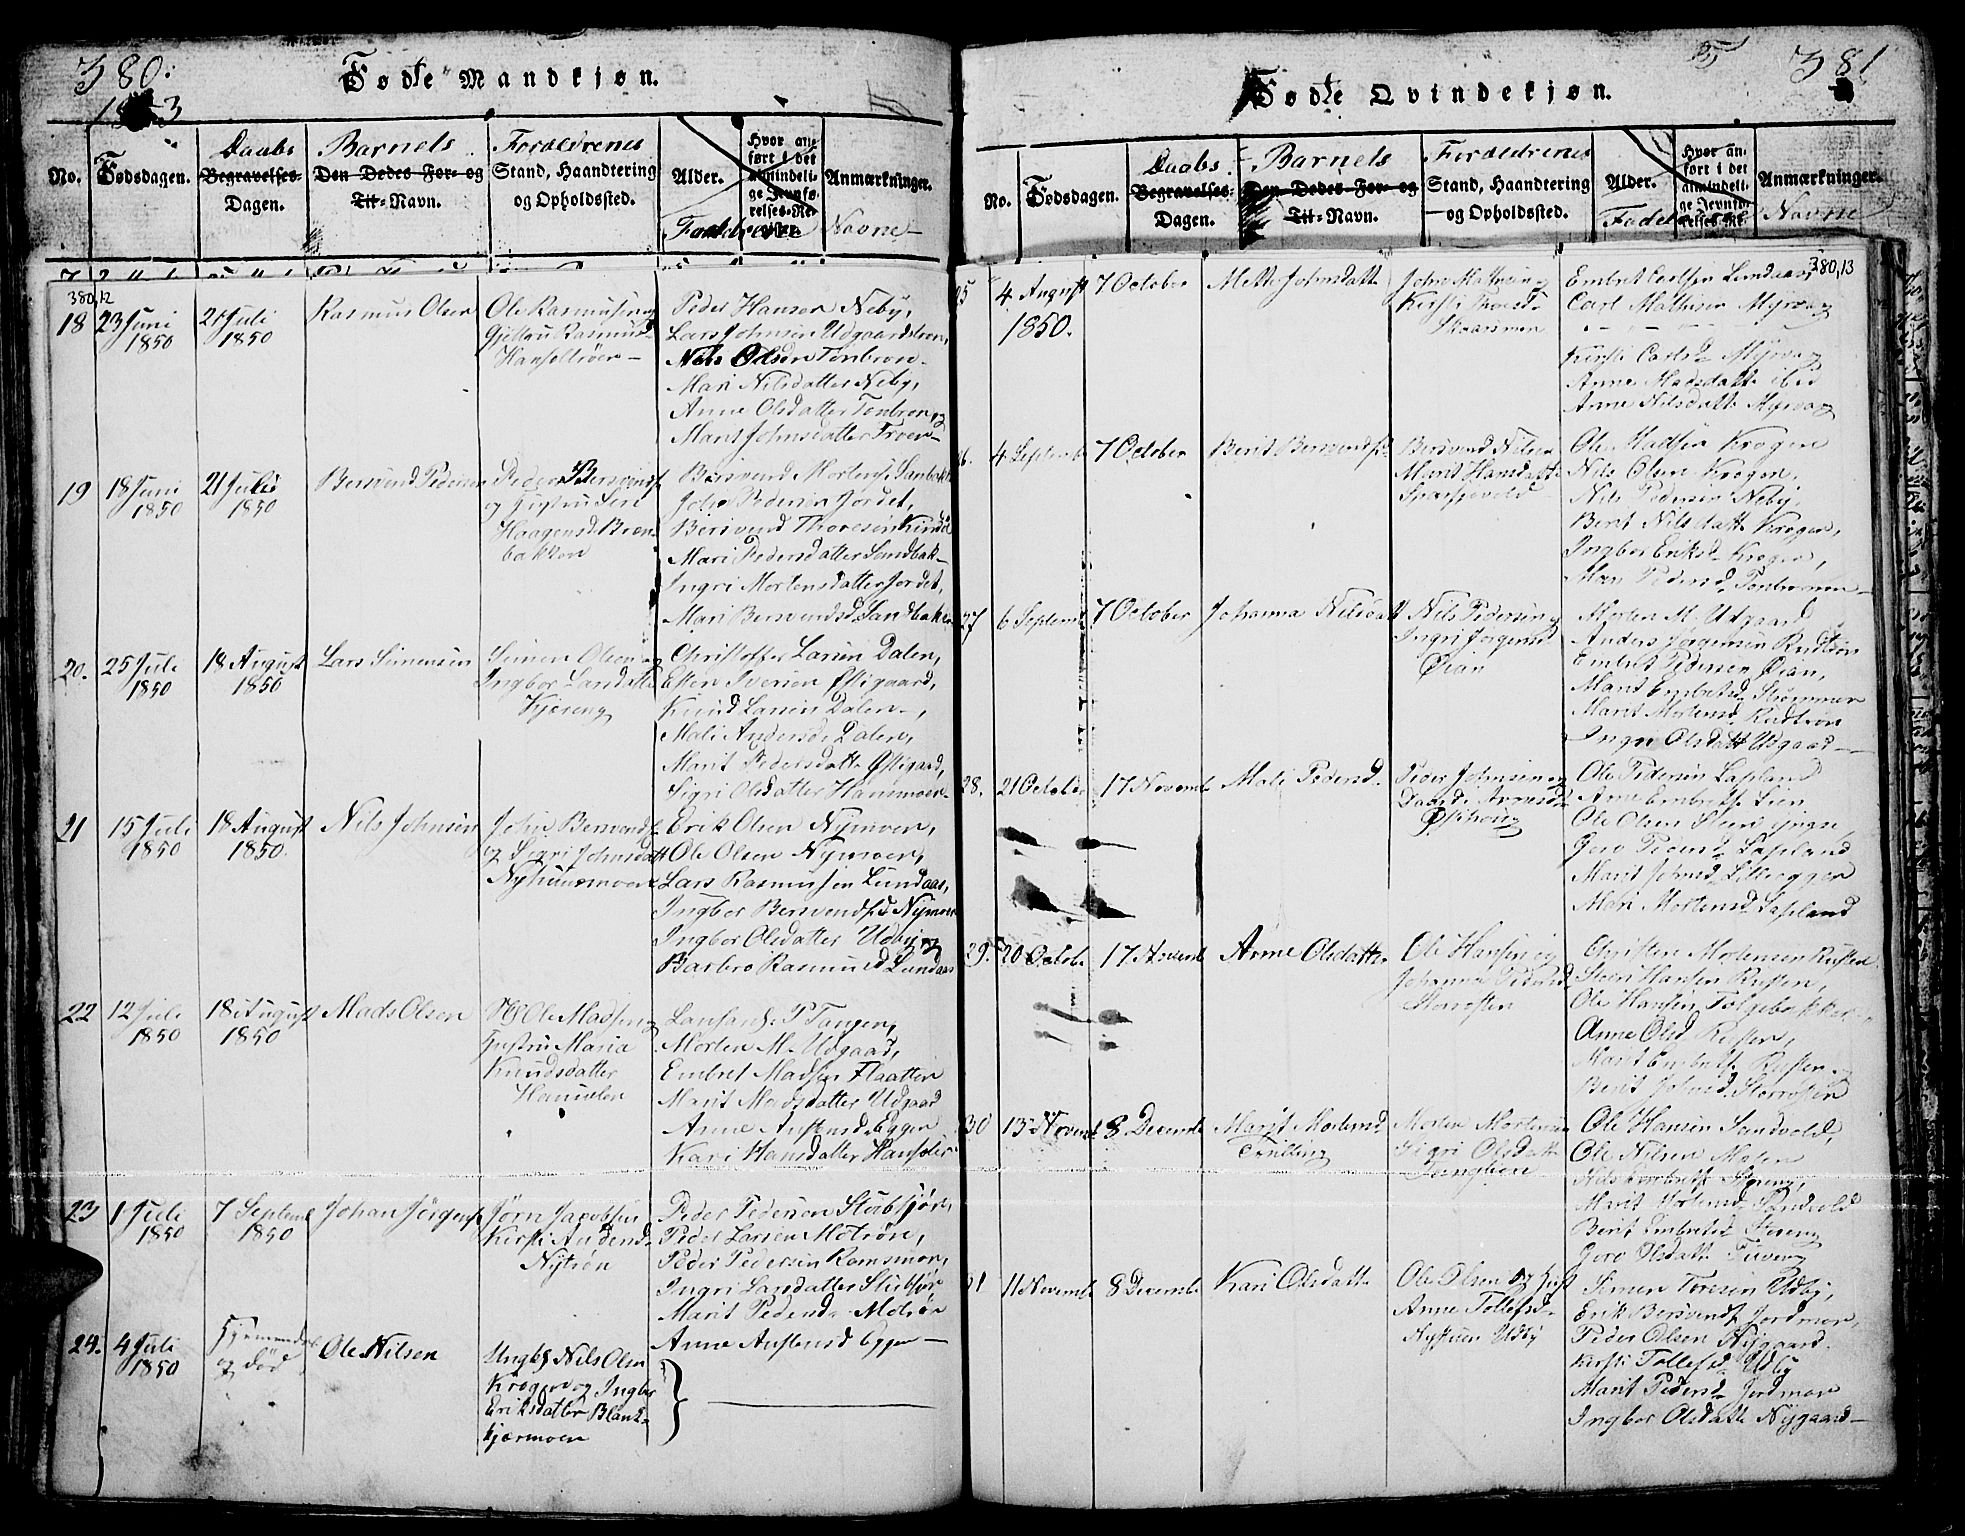 380.
1853
Fødte Mandkjøn.
No.
Fødsdagen.
Daabs
Begravelses-
Dagen.
Barnets
Den Dødes For- og
Til-Navn.
Forældrenes
Stand, Haandtering
og Opholdssted.
Alder.
Hvor an-
ført i det
almindeli-
ge Jevnfø-
relses-Re-
gister.
Anmærkninger.
Faddernes Navne
380,12
18 23 Juni 1850
21 Juli 1850
Rasmus Olsen
Ole Rasmussen og
Gjertru Rasmusd
Hanseltrøen
Peder Hansen Neby,
Lars Johnsen Udgaardstrøen,
Nels Olsen Tonbroen
Mari Nilsdatter Neby,
Anne Olsdatter Tonbroen og
Marit Johnsdatter Troen
19 18 Juni 1850
21 Juli 1850
Bersvend Pedersen
Peder Bersvends.
og Hustru Siri
Haagensd Bræn-
bakken
Bersvend Mortens. Sandbak
John Pedersen Jordet,
Bersvend Thoresen
Mari Pedersdatter Sandbak
Ingri Mortensdatter Jordet,
Mari Bersvendsd Sandbakken
20. 25 Juli 1850
18 August 1850
Lars Simensen
Simen Olsen og
Ingbor Larsdatter
Kjæreng
Christoffer Larsen Dalen,
Esten Iversen Østigaard,
Knud Larsen Dalen,
Mali Andersd. Dalen,
Marit Pedersdatte Østigaard,
Sigri Olsdatter Hammoen
21 15 Juli 1850
18 August 1850.
Nils Johnsen
John Bersvends.
og Sigri Johnsdatt
Nyhuusmoen
Erik Olsen Nymoen,
Ole Olsen Nymoen,
Lars Rasmussen Lundaas,
Ingbor Bersvendsd Nymoen
Ingbor Olsdatter Udby og
Barbro Rasmusd Lundaas
22 12 Juli 1850
18 August 1850
Mads Olsen
Ole Madsen og
Hustru Maria
Knudsdatter
P. Tangen,
Morten M. Udgaad,
Embret Madsen Flaatten
Marit Madsdatter Udgaad
Anne Austensd. Eggen
Kari Hansdatter
23 1 Juli 1850
7 Septemb 1850
Johan Jörgens.
Jørn Jacobsen
Kirsti Audensd.
Nytrøn
Peder Pedersen Stubsjøen,
Peder Larsen Motrøn,
Peder Pedersen Ramsmoe,
Ingri Larsdatter Stubsjø
Marit Pedersd. Motrøn
Anne Austensd Eggen
24. 4 Juli 1850
Hjemmedøbt
og død
Ole Nilsen
Ungkl Nils Olsen
Krogen og Ingbor
Eriksdatter Blank-
kjærmoen
381
Fødte Qvindekjøn.
No.
Fødsdagen.
Daabs
Begravelses-
Dagen.
Barnets
Den Dødes For- og
Til-Navn.
Forældrenes
Stand, Haandtering
og Opholdssted.
Alder.
Hvor an-
ført i det
almindeli-
ge Jevnfø-
relses-Re-
Anmærkninger.
Faddernes Navne
380,13
25 4 August 1850.
7 October
Mette Johnsdatt
John Mathisen og
Kirsti
Skaarsmoen
Embret Carlsen Lundaas,
Carl Mathisen Myrvang
Kirsti Carlsd. Myrvang
Anne Madsdatt ibid
Anne Nilsdatt Myrvang
26. 4 Septemb
7 October
Berit Bersvendsd.
Bersvend Nilsen
Marit Hansdatt
Ole Knudsen Krogen
Nils Olsen Krogen,
Nils Pedersen Neby,
Berit Nilsdatt Krogen,
Ingbor Eriksd. Krogen,
Mari Pedersd. Tonbroen
27 6 Septemb
7 October
Johanna Nilsdatt
Nils Pedersen og
Ingri Jörgensd
Øian
Morten M. Udgaard
Anders Jørgensen Rudtrøn
Embret Pedersen Øian,
Marit Embretsd. Strømmen
Marit Mortensd. Rudtrøn
Ingri Olsdatt Udgaard
28. 21 Octobr
17 Novemb
Mali Pedersd.
Peder Johnsen og
Arnesd
Østhoug
Ole Pedersen Lapland
Arne Embrets. Lien
Ole Olsen
Gjero Pedersd. Lapland
Marit Johnsd.
Mari Mortensd Lapland
29. 20 Octob.
17 Novemb
Anne Olsdatt.
Ole Hansen og
Johanna Pedersd.
Storrøsten
Christen Mortensen Rusten
Hansen Rusten,
Ole Hansen Tolgebakken
Anne Olsd Rusten,
Marit Embretsd. Rusten
Berit Johnsd. Storrøsten
30 13 Novemb
8 Decemb
Marit Mortensd
Tvilling
Morten Mortensen
Sigri Olsdatt
Ole Hansen Sandvold,
Ole Nilsen Mosen
Nils Embrets. Støeng,
Marit Mortensd. Sandvold
Berit Embretsd. Støeng
Gjero Olsdatt
31 11 Novemb
8 Decemb
Kari Olsdatt
Ole Olsen og Hust
Anne Tollefsd.
Nystuen Udby
Simen Toresen Udby,
Erik Bersvends. Jordmoe,
Peder Olsen Nygaard.
Kirsti Tollefsd. Udby
Marit Pedersd. Jordmoe
Ingbor Olsdatt Nygaard